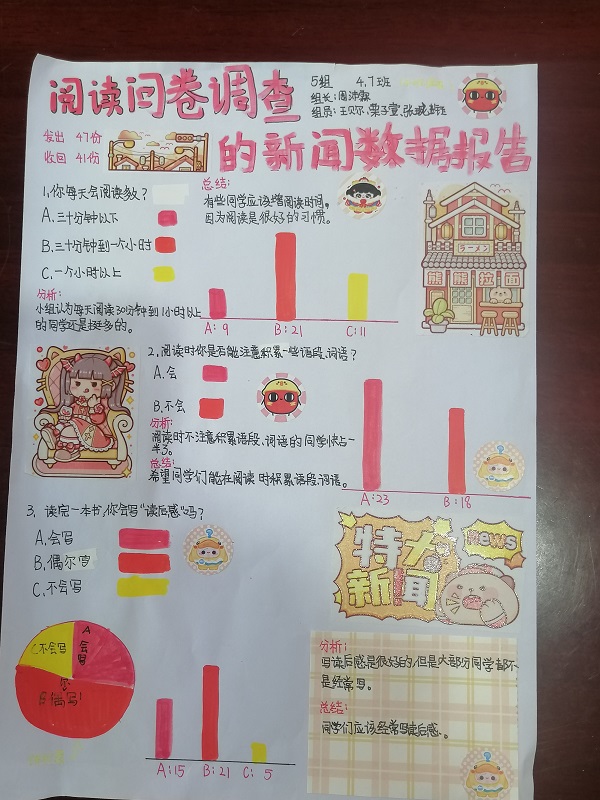 阅读问卷调查
的新闻数据报告
5组 4.7班
组长:周沛霖
组员:王贝尔、栗子萱、张
发出 47份
收回 41份
1.你每天会阅读数?
A.三十分钟以下
B.三十分钟到一个小时
C.一个小时以上
分析:
小组认为每天阅读30分钟到1小时以上
的同学还是挺多的。
总结:
有些同学应该增阅读时间,
因为阅读是很好的习惯。
A:9 B:21 C:11
ラーメン
熊熊拉面
2.阅读时你是否能注意积累一些语段、词语?
A.会
B.不会
分析:
阅读时不注意积累语段、词语的同学快占一
半了。
总结:
希望同学们能在阅读时积累语段、词语。
A:23 B:18
3.读完一本书,你会写"读后感"吗?
A.会写
B.偶尔写
C.不会写
A会写
C不会写
B偶尔写
A:15 B:21 C:5
特大
新闻
News
分析:
写读后感是很好的,但是大部分同学都不
是经常写。
总结:
同学们应该经常写读后感。